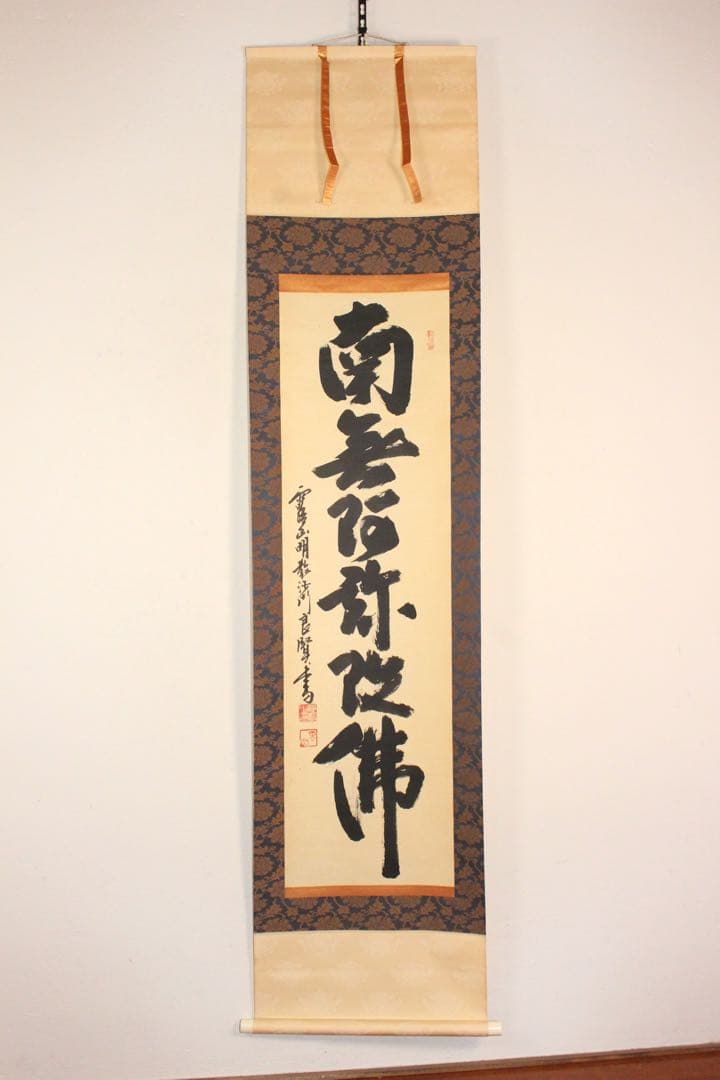 南無阿弥陀佛
霊山明教沙門良賢書